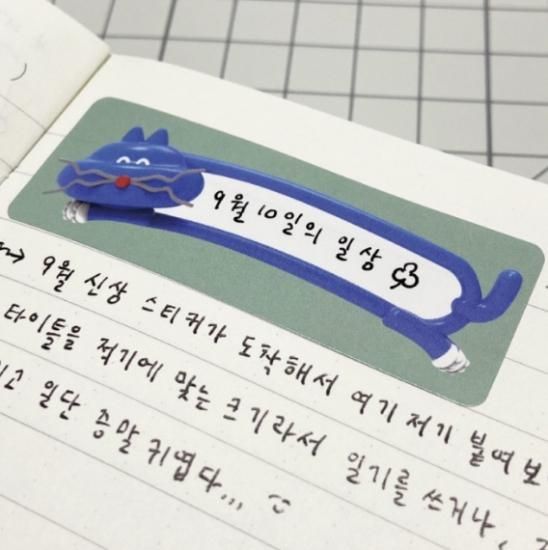 9월 10일의 일상
9월 신상 스티커가 도착해서 여기저기 붙여보
타이틀을 적기에 맞는 크기라서 일기를 쓰거나,
고 일단 증말 귀엽다...